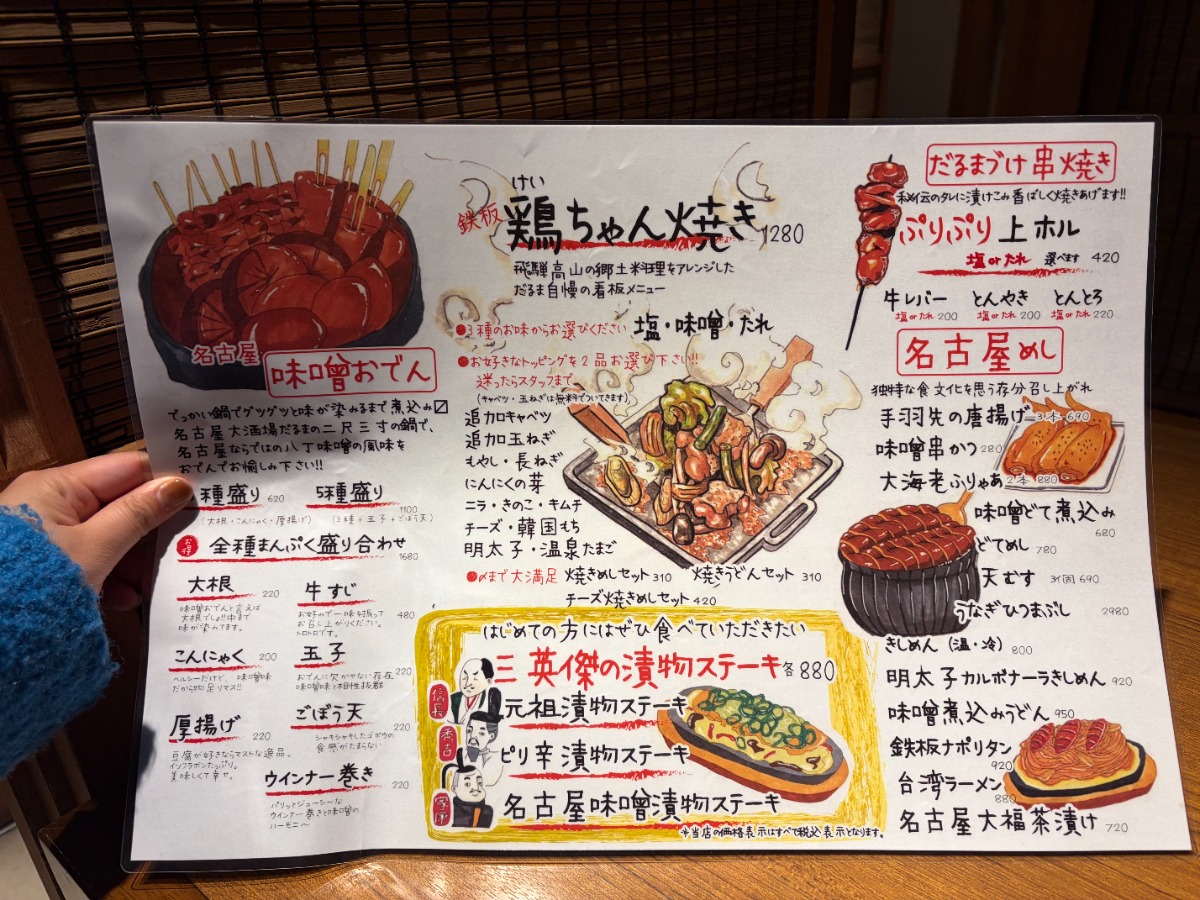 名古屋
味噌おでん
でっかい鍋でグツグツと味が染みるまで煮込み〼
名古屋大酒場だるまの二尺三寸の鍋で、
名古屋ならではの八丁味噌の風味を
おでんでお愉しみ下さい!!
種盛り 620
5種盛り 1100
(大根・こんにゃく・厚揚げ)
(3種+玉子+ごぼう天)
お得
全種まんぷく盛り合わせ 1680
大根 220
味噌おでんと言えば
大根でしょ!!中まで
味が染みてます。
牛すじ 480
お好みで一味付振って
お召し上がりください。
トロトロです。
こんにゃく 200
ヘルシーだけど、味噌味
だから物足りマス!!
玉子 220
おでんに欠かせない存在
味噌味と相性抜群
厚揚げ 220
豆腐が好きならマストな逸品。
イソフラボンたっぷり。
美味しくて幸せ。
ごぼう天 220
シャキシャキしたゴボウの
食感がたまらない
ウインナー巻き 220
パリッとジューシーな
ウインナー巻きと味噌味の
ハーモニ〜
けい
鉄板 鶏ちゃん焼き 1280
飛騨高山の郷土料理をアレンジした
だるま自慢の看板メニュー
●3種のお味からお選びください 塩・味噌・たれ
●お好きなトッピングを2品お選び下さい!!
迷ったらスタッフまで
(キャベツ・玉ねぎは無料でついてきます)
追加キャベツ
追加玉ねぎ
もやし・長ねぎ
にんにくの芽
ニラ・きのこ・キムチ
チーズ・韓国もち
明太子・温泉たまご
●〆まで大満足 焼きめしセット310 焼きうどんセット 310
チーズ焼きめしセット420
はじめての方にはぜひ食べていただきたい
三英傑の漬物ステーキ各880
信長
元祖漬物ステーキ
秀吉
ピリ辛漬物ステーキ
家康
名古屋味噌漬物ステーキ
*当店の価格表示はすべて税込表示となります。
だるまづけ串焼き
秘伝のタレに漬けこみ香ばしく焼きあげます!!
ぷりぷり上ホル
塩orたれ 選べます 420
牛レバー とんやき とんとろ
塩orたれ 200 塩orたれ 200 塩orたれ 220
名古屋めし
独特な食文化を思う存分召し上がれ
手羽先の唐揚げ 3本 690
味噌串かつ 280
大海老ふりゃあ 2本 880
味噌どて煮込み 680
どてめし 780
天むす 3個 690
うなぎひつまぶし 2980
きしめん(温・冷) 800
明太子カルボナーラきしめん 920
味噌煮込みうどん 950
鉄板ナポリタン 920
台湾ラーメン 880
名古屋大福茶漬け 720